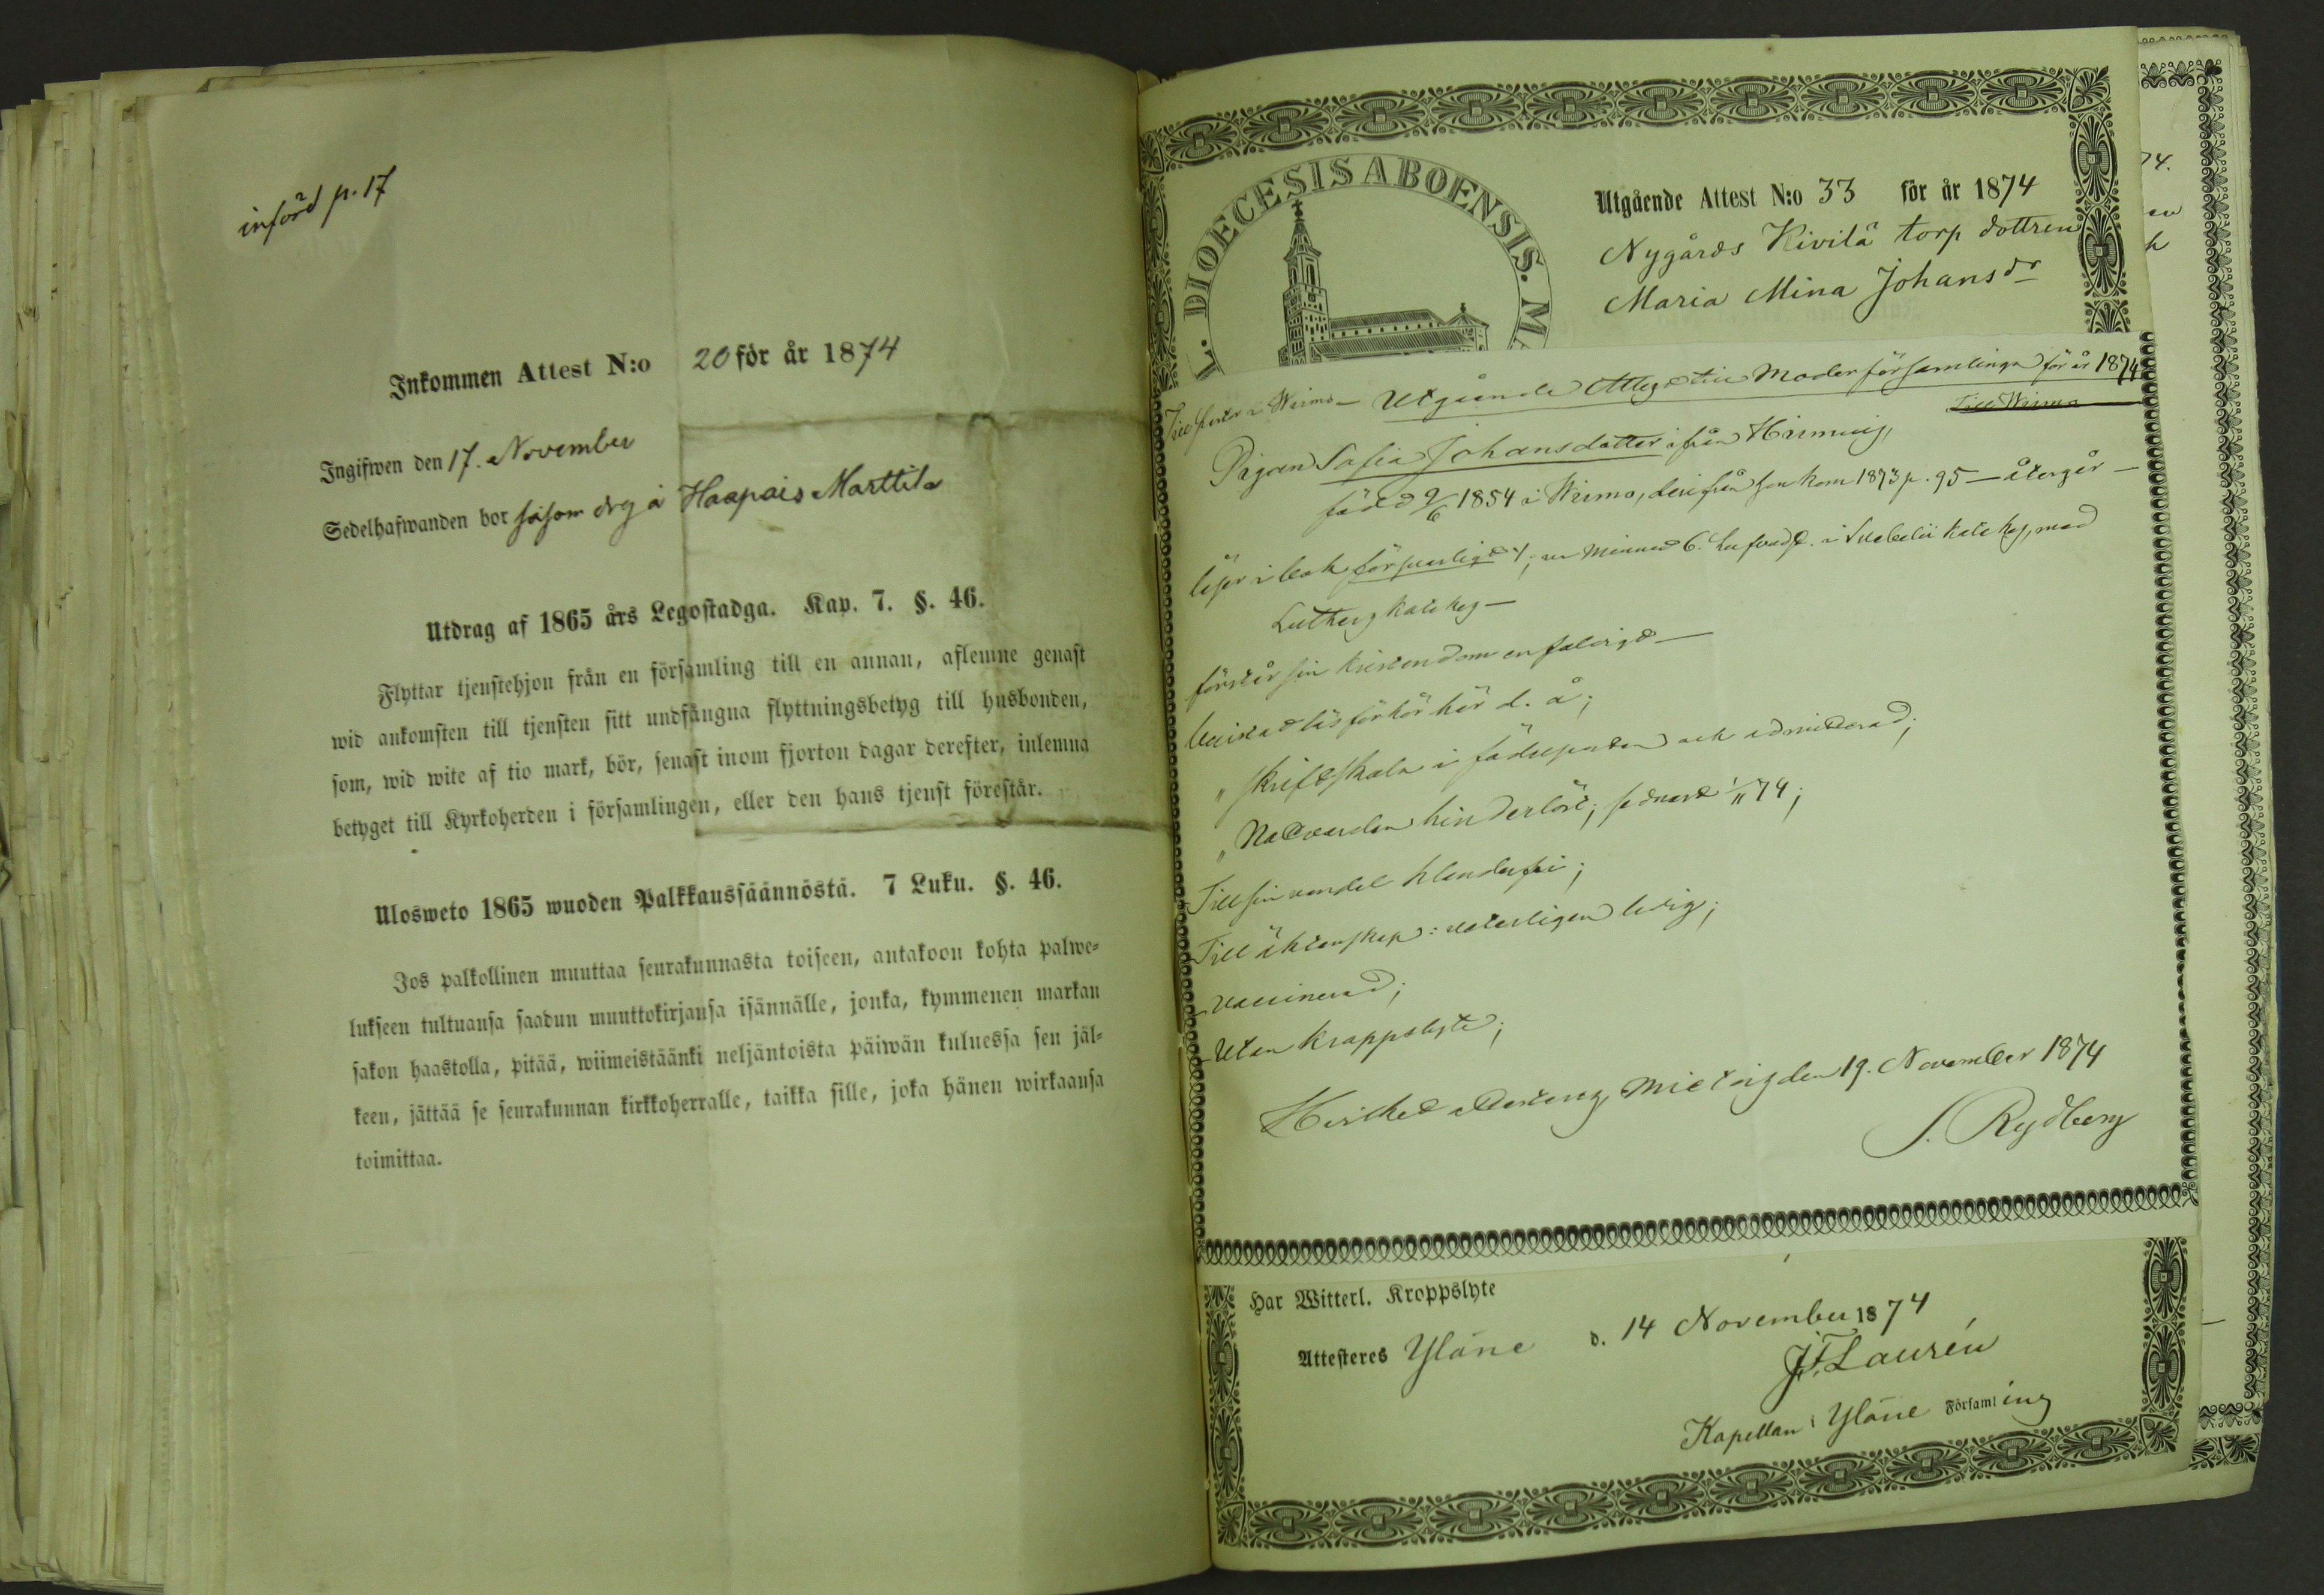 införd p. 17
Inkommen Attest N:o 20 för år 1874
Ingifwen den 17. November
Sedelhafwanden bor såsom drg å Haapais Marttila
Utdrag af 1865 års Legostadga. Kap. 7. §. 46.
Flyttar tjenstehjon från en församling till en annan, aflemne genast
wid ankomsten till tjensten sitt undfångna flyttningsbetyg till husbonden,
som, wid wite af tio mark, bör, senast inom fjorton dagar derefter, inlemna
betyget till Kyrkoherden i församlingen, eller den hans tjenst förestår.
Ulosweto 1865 wuoden Palkkaussäännöstä. 7 Luku. §. 46.
Jos palkollinen muuttaa seurakunnasta toiseen, antakoon kohta palwe-
lukseen tultuansa saadun muuttokirjansa isännälle, jonka, kymmenen markan
sakon haastolla, pitää, wiimeistäänki neljäntoista päiwän kuluessa sen jäl-
keen, jättää se seurakunnan kirkkoherralle, taikka sille, joka hänen wirkaansa
toimittaa.
L. DIOECESIS ABOENSIS. M
Utgående Attest N:o 33 för år 1874
Nygårds Kivilä torp dottren
Maria Mina Johansdr
Utgående Attest till Moderförsamlingen för år 1874
Till Wirmo
Pigan Sofia Johansdotter ifrån
född 9/6 1854 i Wirmo, derifrån hon kom 1873 p. 95 — återgår —
läser i bok försvarligt; ur minnet 6. hufvudst. i Svebelii katekes, med
Luthers katekes —
förstår sin kristendom enfaldigt —
bevistat läsförhör här d. å;
„ skriftskola i och admitterad;
„ Nattvarden hinderlöst; sednast 1/11 74;
Till sin vandel klanderfri;
Till äktenskap: veterligen ledig;
vaccinerad;
Utan kroppslyte;
Mietois den 19. November 1874
S. Rydberg
Har Witterl. Kroppslyte
Attesteres Yläne d. 14 November 1874
J.F. Laurén
Kapellan i Yläne Församling